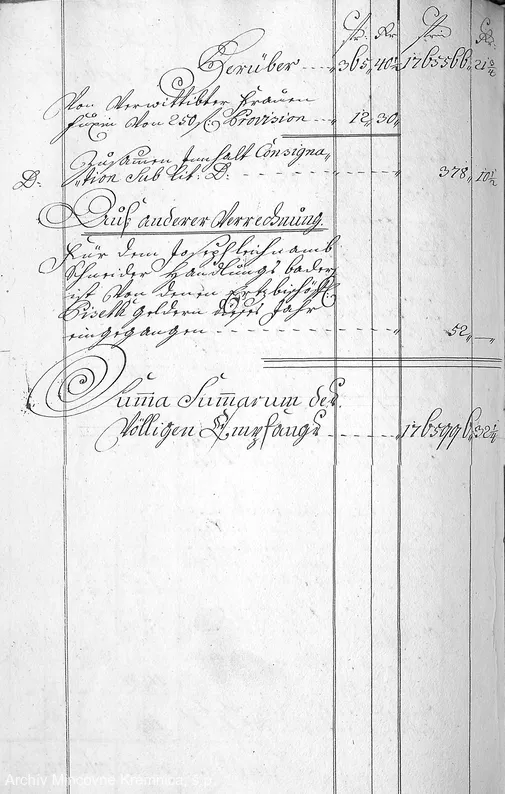 fl: Kr fl: Kr
Herüber 365 40½ 1765566 21¾
Von Verwittibter Frauen
Fuxin Von 250 fl: Provision 12 30
Zusamen Innhalt Consigna„
D: „tion Sub lit: D: 378 10½
Auß anderer Verrechnung
Für dem Joseph
Schneider Handlungs
ist Von denen Ertzbischöffl:
Geldern dieses Jahr
eingegangen 52 —
Suma Sumarum des
Völligen Empfangs 1765996 32¼
Archív Mincovne Kremnica, š.p.